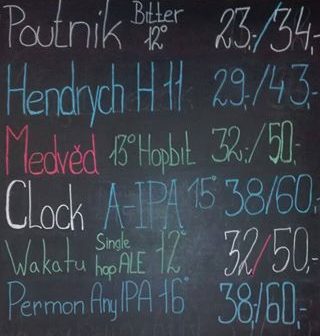 Poutnik Bitter 12° 23,-/34,-
Hendrych H11 29,-/43,-
Medvěd 13° Hopbit 32,-/50,-
Clock A-IPA 15° 38/60,-
Wakatu Single hop ALE 12° 32/50,-
Permon Any IPA 16° 38,-/60,-